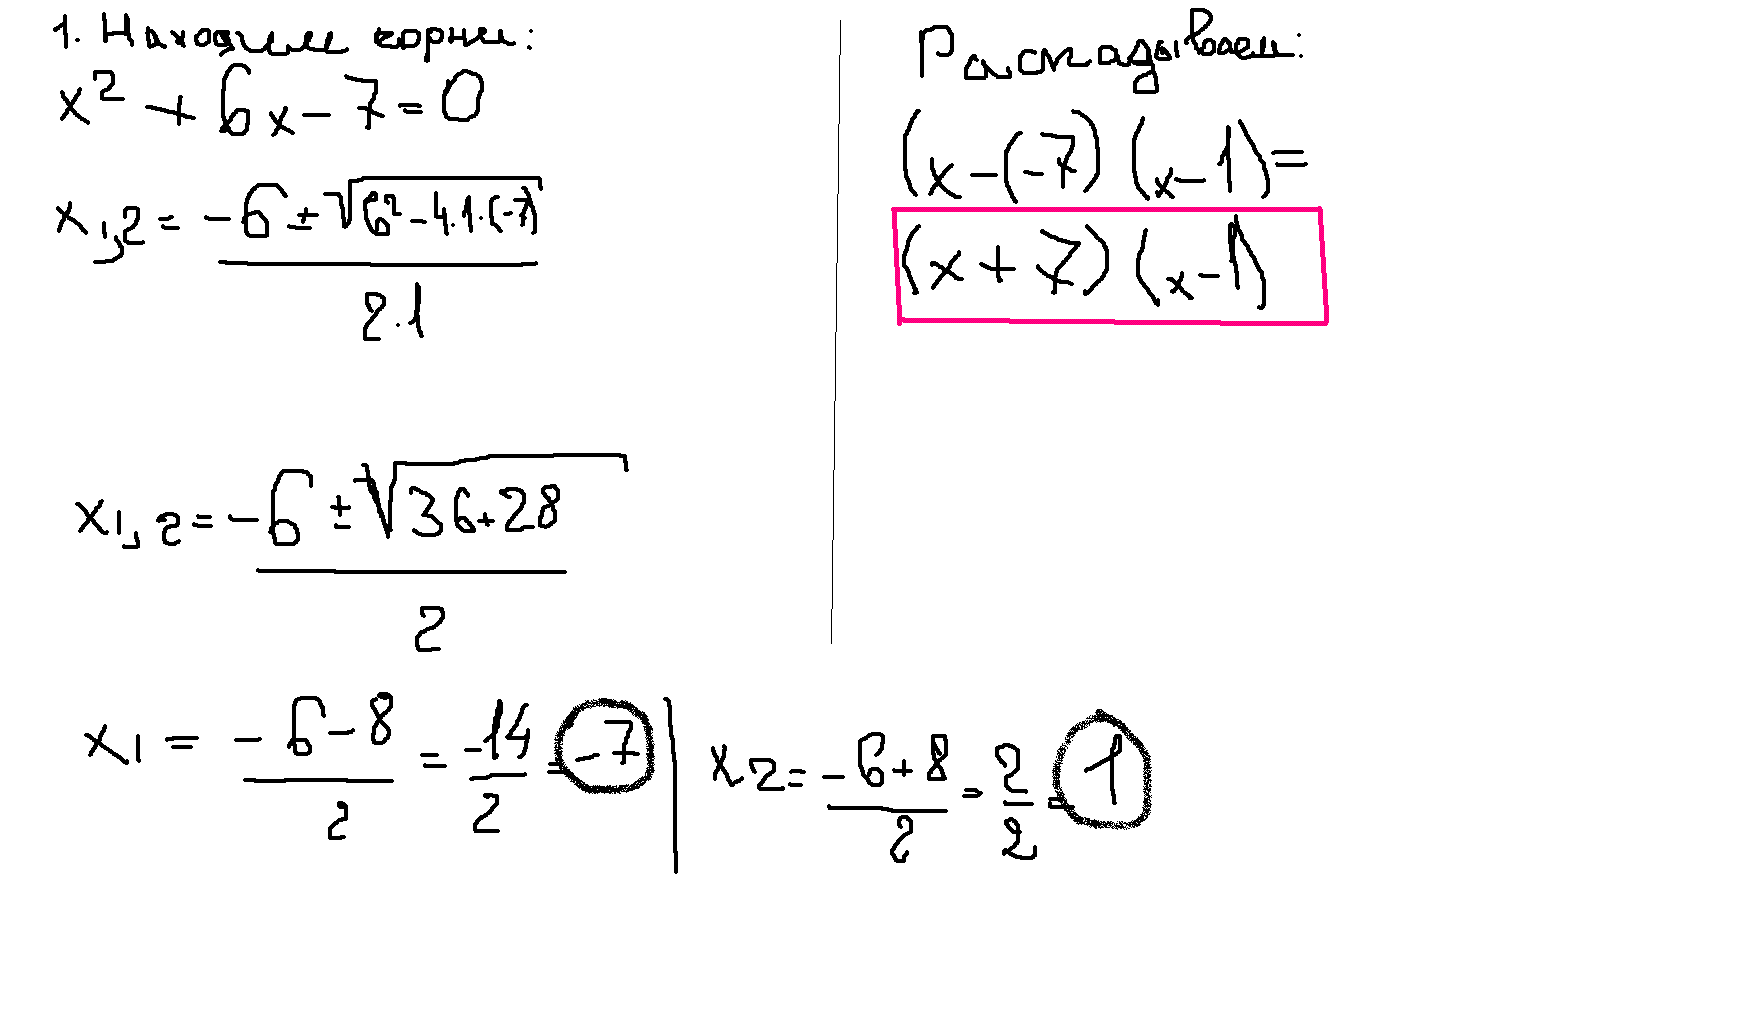 1. Находим корни:
x² + 6x - 7 = 0
x₁,₂ = (-6 ± √(6² - 4·1·(-7))) / (2·1)
x₁,₂ = (-6 ± √(36+28)) / 2
x₁ = (-6-8)/2 = -14/2 = -7
x₂ = (-6+8)/2 = 2/2 = 1
Раскладываем:
(x-(-7)) (x-1) =
(x+7) (x-1)